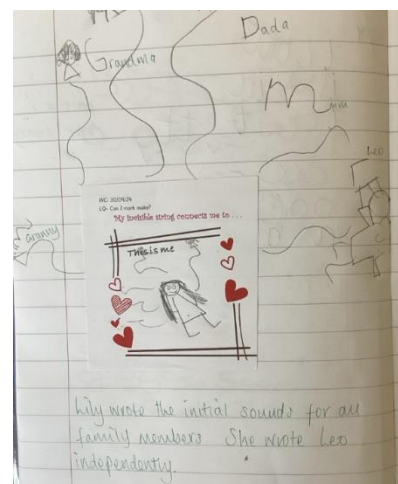 Dada
Grandma
Mum
Leo
Granny
LO- Can I mark make?
My invisible string connects me to . . .
This is me
Lily wrote the initial sounds for all
family members She wrote Leo
independently.